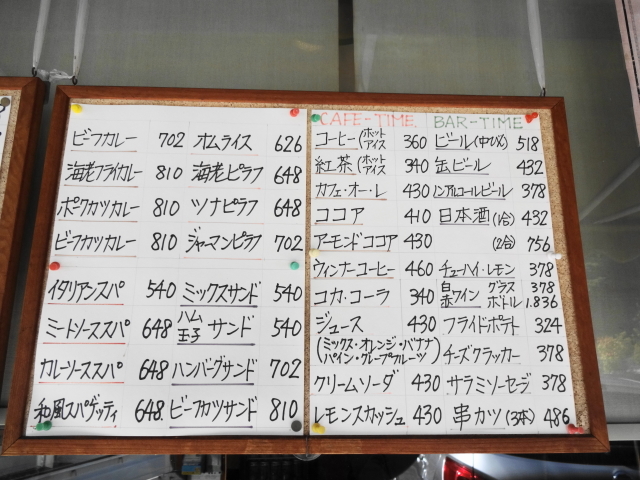 ビーフカレー 702 オムライス 626
海老フライカレー 810 海老ピラフ 648
ポークカツカレー 810 ツナピラフ 648
ビーフカツカレー 810 ジャーマンピラフ 702
イタリアンスパ 540 ミックスサンド 540
ミートソーススパ 648 ハム玉子サンド 540
カレーソーススパ 648 ハンバーグサンド 702
和風スパゲッティ 648. ビーフカツサンド 810
CAFE-TIME. BAR-TIME
コーヒー(ホットアイス 360 ビール(中びん) 518
紅茶(ホットアイス 340 缶ビール 432
カフェ・オ・レ 430 ノンアルコールビール 378
ココア 410 日本酒(1合) 432
アーモンドココア 430 (2合) 756
ウィンナーコーヒー 460 チューハイ・レモン 378
コカ・コーラ 340 白赤ワイン グラス 378 ボトル 1.836
ジュース 430 フライドポテト 324
(ミックス・オレンジ・バナナ
パイン・グレープフルーツ) チーズクラッカー 378
クリームソーダ 430 サラミソーセージ 378
レモンスカッシュ 430 串カツ(3本) 486